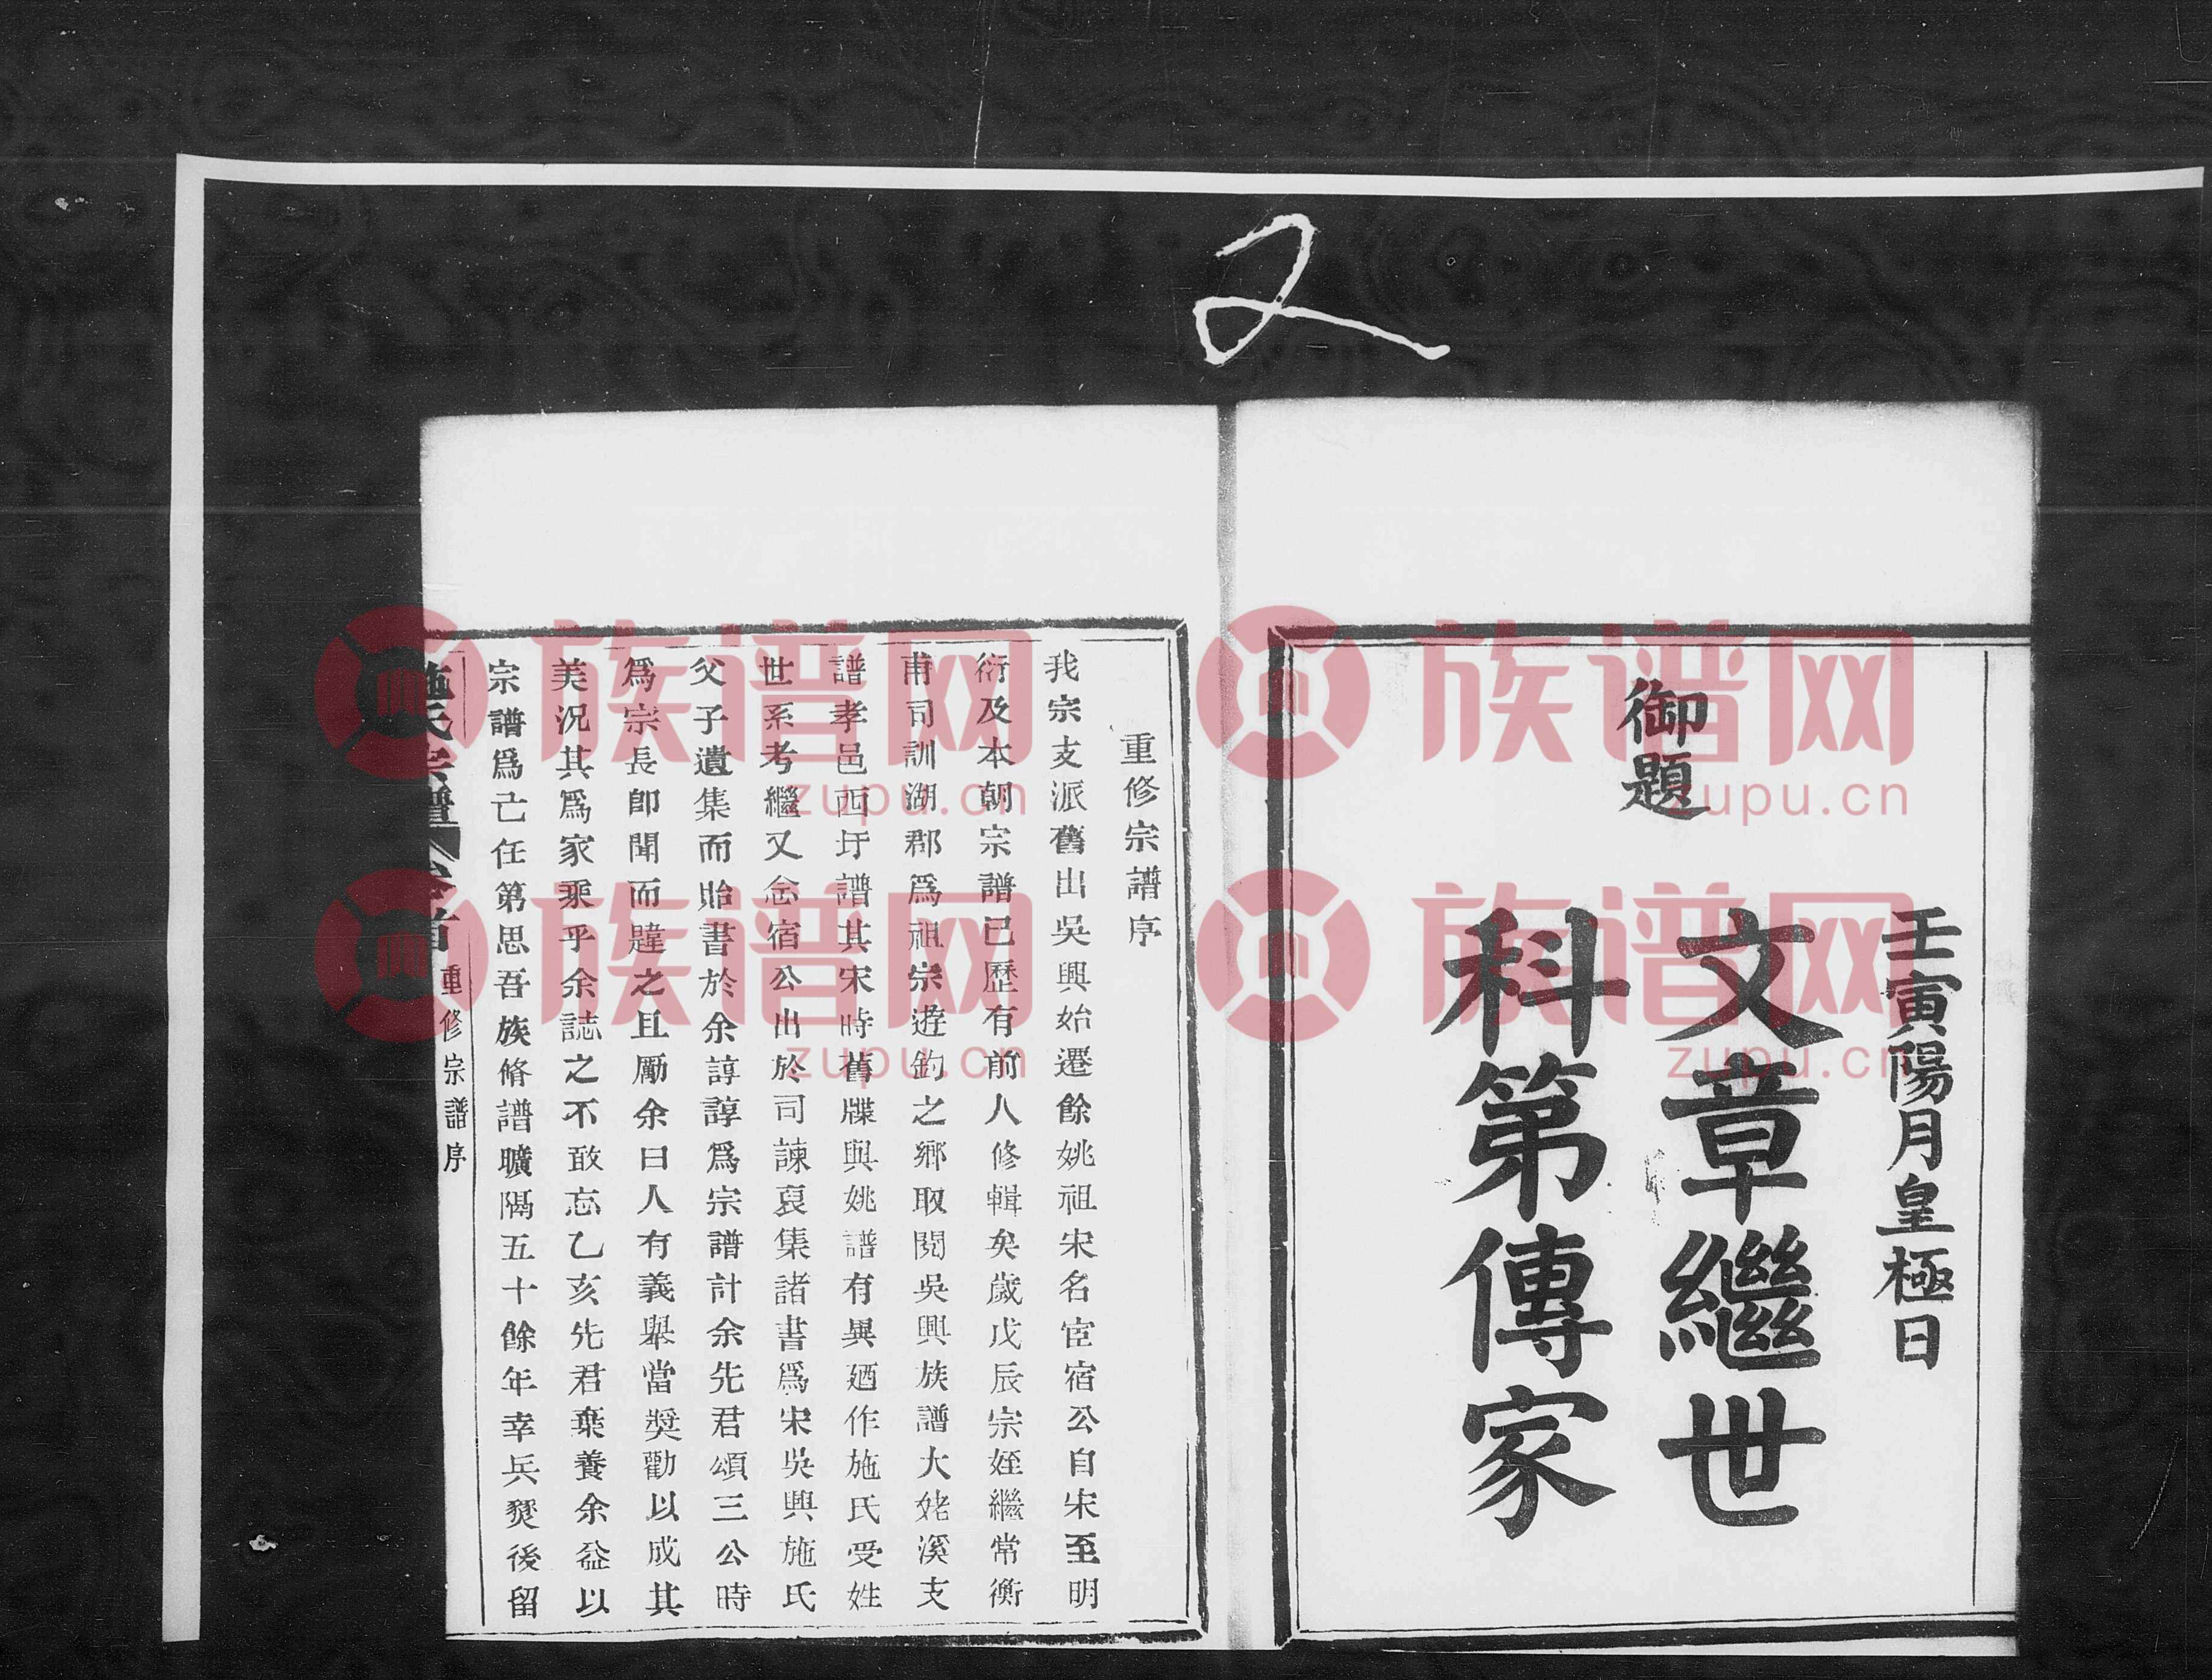 2
壬寅陽月皇極日
御題
文章繼世
科第傳家
重修宗譜序
我宗支派舊出吳興始遷餘姚祖宋名宦宿公自宋至明
衍及本朝宗譜已歷有前人修輯矣歲戊辰宗姪繼常衡
甫司訓湖郡爲祖宗遊釣之鄉取閱吳興族譜大姥溪支
譜孝邑西圩譜其宋時舊牒與姚譜有異廼作施氏受姓
世系考繼又念宿公出於司諫裒集諸書爲宋吳興施氏
父子遺集而貽書於余諄諄爲宗譜計余先君頌三公時
爲宗長卽聞而韙之且勵余曰人有義舉當奬勸以成其
美況其爲家乘乎余誌之不敢忘乙亥先君棄養余益以
宗譜爲亡任第思吾族脩譜曠隔五十餘年幸兵燹後留
施氏宗譜 卷首 重修宗譜序
族谱网
zupu.cn
族谱网
zupu.cn
族谱网
zupu.cn
族谱网
zupu.cn